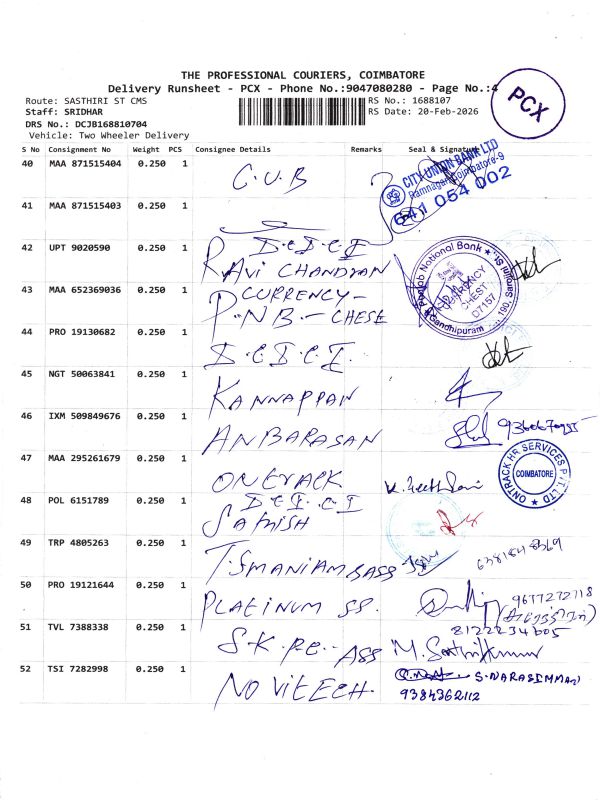 THE PROFESSIONAL COURIERS, COIMBATORE
Delivery Runsheet - PCX - Phone No.:9047080280 - Page No.:4
PCX
Route: SASTHIRI ST CMS
RS No. : 1688107
Staff: SRIDHAR
RS Date: 20-Feb-2026
DRS No.: DCJB168810704
Vehicle: Two Wheeler Delivery
S No Consignment No Weight PCS Consignee Details Remarks Seal & Signature
40 MAA 871515404 0.250 1 C.U.B
CITY UNION BANK LTD
Ramnagar, Coimbatore-9
641 054 002
41 MAA 871515403 0.250 1
42 UPT 9020590 0.250 1 D.C.D.C.I
RAVi CHANDRAN
Punjab National Bank
CURRENCY CHEST
D7157
Gandhipuram
43 MAA 652369036 0.250 1 CURRENCY -
P.N.B. - CHESE
44 PRO 19130682 0.250 1 D.C.D.C.I.
45 NGT 50063841 0.250 1 KANNAPPAN
46 IXM 509849676 0.250 1 ANBARASAN
47 MAA 295261679 0.250 1 ONERACK
ONTRACK HR SERVICES PVT LTD
COIMBATORE
48 POL 6151789 0.250 1 D.C.D.C.I
SATHISH
49 TRP 4805263 0.250 1 T.SMANIAM SASS
6381848369
50 PRO 19121644 0.250 1 PLATINUM SS.
9677272718
51 TVL 7388338 0.250 1 S.K.P.E. ASS
8122234605
M. Sathishkumar
52 TSI 7282998 0.250 1 NOViTECH.
S.NARASIMMAN
9384362112